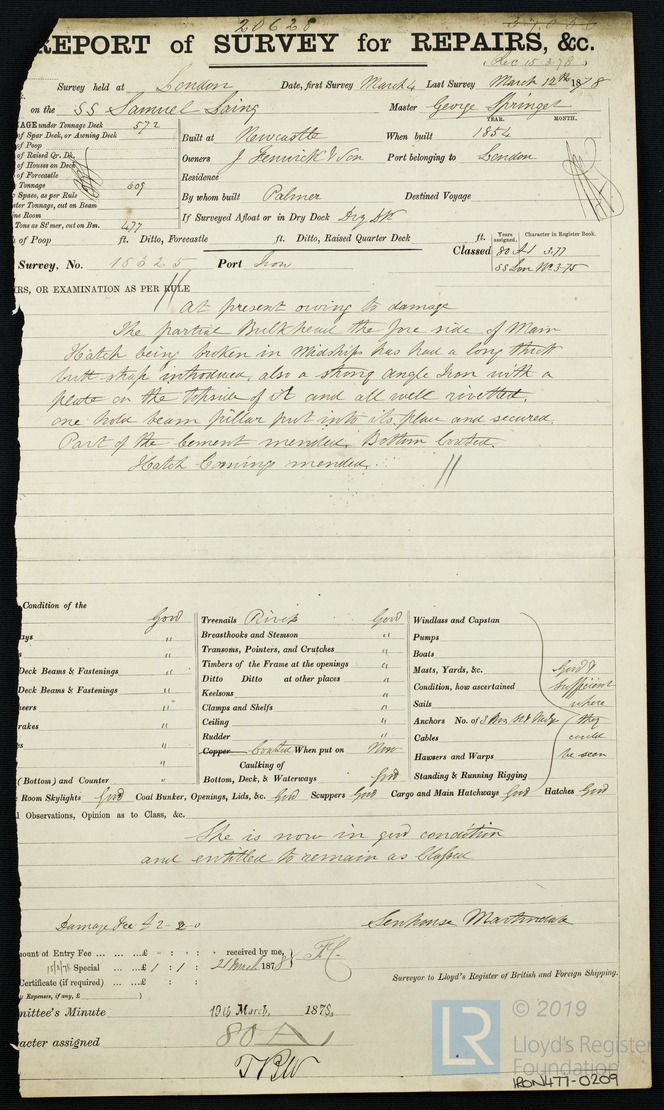 20628
REPORT of SURVEY for REPAIRS, &c.
Rec 15 3 78
Survey held at London Date, first Survey March 4 Last Survey March 12th 1878
on the SS Samuel Laing Master George Springet
YEAR. MONTH.
AGE under Tonnage Deck 572
of Spar Deck, or Awning Deck
Built at Newcastle When built 1854
of Poop
of Raised Qr. Dk.
Owners J Fenwick & Son Port belonging to London
of Houses on Deck
of Forecastle
Residence
Tonnage 609
Space, as per Rule
By whom built Palmer Destined Voyage
ster Tonnage, cut on Beam
ne Room
If Surveyed Afloat or in Dry Dock Dry Dk
Tons as St'mer, cut on Bm. 477
of Poop ft. Ditto, Forecastle ft. Ditto, Raised Quarter Deck ft.
Years assigned. Character in Register Book.
Classed 80 A1 3.77
SS Lon No 3-75
Survey, No. 18625 Port Iron
IRS, OR EXAMINATION AS PER RULE
At present owing to damage
The partial Bulkhead the fore side of Main
Hatch being broken in Midships has had a long thick
butt strap introduced, also a strong angle Iron with a
plate on the topside of it and all well rivetted.
one hold beam pillar put into its place and secured.
Part of the Cement mended. Bottom Coated.
Hatch Comings mended.
Condition of the
Good Treenails Rivets Good Windlass and Capstan
ays " Breasthooks and Stemson " Pumps
s " Transoms, Pointers, and Crutches " Boats
Deck Beams & Fastenings " Timbers of the Frame at the openings " Masts, Yards, &c. Good &
Deck Beams & Fastenings " Ditto Ditto at other places " Condition, how ascertained Sufficient
Keelsons "
eers " Clamps and Shelfs " Sails where
rakes " Ceiling " Anchors No. of 3 they
Rudder "
es " Copper Coated When put on Now Cables could
" Caulking of Hawsers and Warps be seen
(Bottom) and Counter " Bottom, Deck, & Waterways Good Standing & Running Rigging
Room Skylights Good Coal Bunker, Openings, Lids, &c. Good Scuppers Good Cargo and Main Hatchways Good Hatches Good
l Observations, Opinion as to Class, &c.
She is now in good condition
and entitled to remain as Classed
Damage Fee £2-2-0
Senhouse Martindale
ount of Entry Fee ... ... ...£ " : " : received by me,
Special ... ...£ 1 : 1 : 21 March 1878
Certificate (if required) ... ...£ : :
Expenses, if any, £ )
Surveyor to Lloyd's Register of British and Foreign Shipping.
mittee's Minute 19th March, 1878,
racter assigned 80 A1
TBW
LR
© 2019
Lloyd's Register
Foundation
IRON477-0209